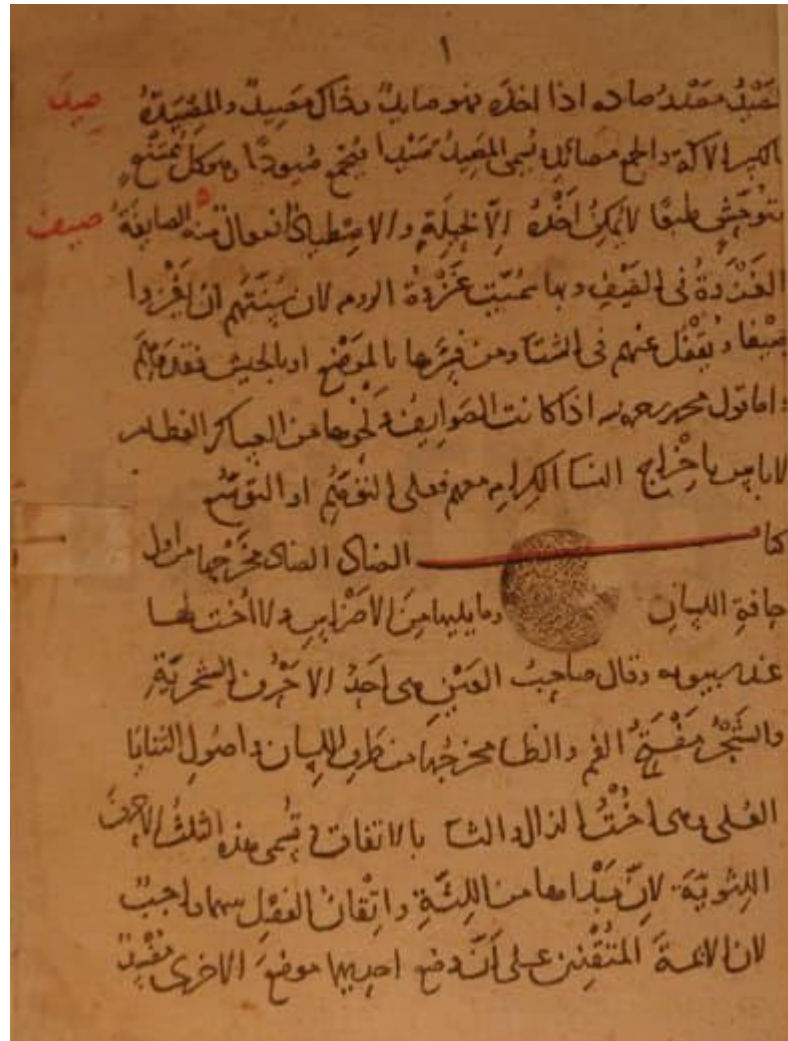 ١
الصَّيْدُ مصْدَرُ صاده اذا اخذه فهو صايدٌ وذاك مَصِيدٌ والمِصْيَدَةُ صيد
بالكسر الآلة والجمع مصائد ويسمى المَصِيدُ صَيْدا فيُجْمَع صُيودًا وهو كل مُمْتَنِعٍ
مُتَوَحِّشٍ طبعًا لا يُمكِنُ اَخْذُه اِلّا بحِيلَةٍ والاصْطِيادُ افتعال منه الصايفَةُ صيف
الغَزْوَةُ فى الصَّيْفِ وبها سُمّيت غَزْوَةُ الروم لان سُنّتَهم ان يُغْزَوا
صَيْفا ويُقْفَل عنهم فى الشتا ومن فسَّرها بالموضِع او بالجيش فقد وَهَم
واما قول محمد رحمه اذا كانت الصَوايِفُ ونحوها من العساكر العظام
لا باس باِخْراج النسا الكبار معهم فعلى التوهُّم او التوسُّع
كتاب الضاد الضاد مَخْرَجها من اول
حافةِ اللسان وما يليها مِنَ الاضْراسِ ولا اُخت لها
عند سيبويه وقال صاحبُ العَيْنِ هى اَحَدُ الاحْرُفِ الشجْرِيَّةِ
والشَّجْرُ مَفْتَحُ الفم والظا مخرجُها من طرف اللسان واصُول الثنايا
العُلى وهى اُخْتُ الذال والثا بالاتفاق وتُسمى هذه الثلثُ الاحرفُ
اللِثوِيّةَ لانّ مَبْدأها من اللِثَةِ واتْقانُ الفَصْلِ بينهما واجبٌ
لان الائمةَ المتْقِنين على اَنّ وضع احديهما موضعَ الاخرى مُفْسِدٌ